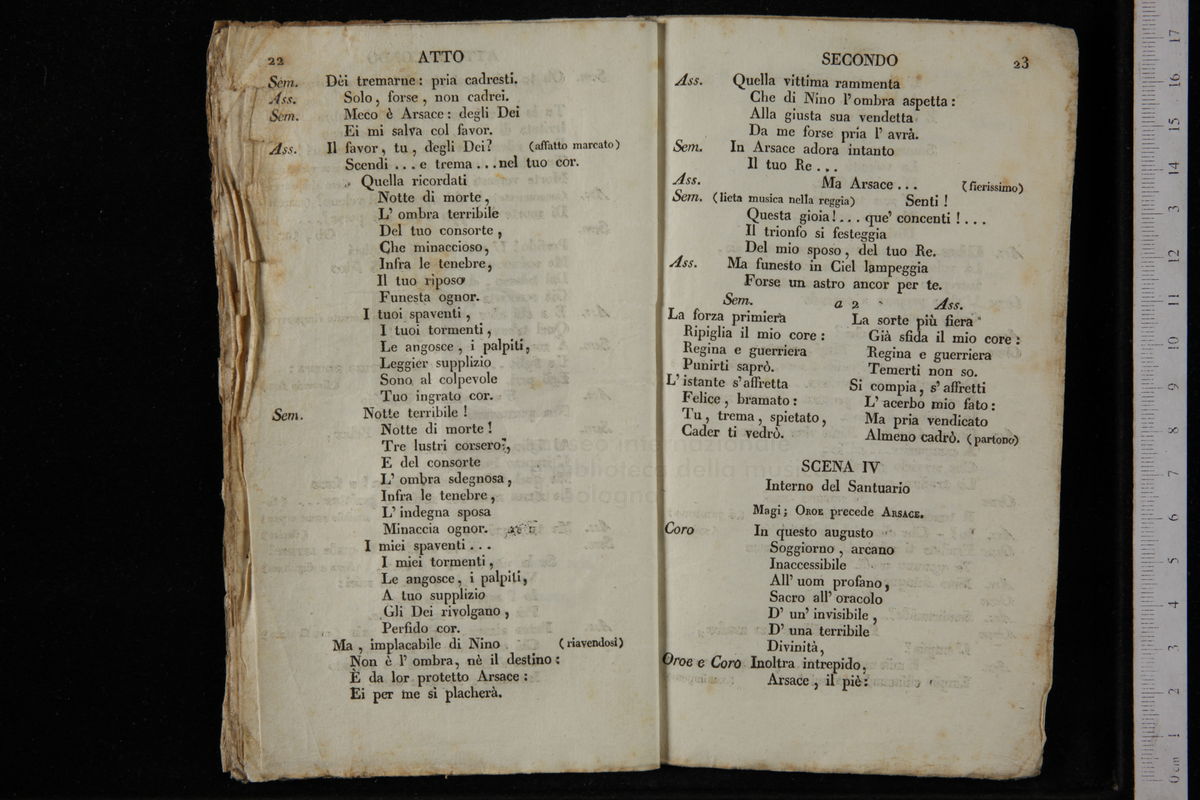 22
ATTO
Sem. Dèi tremarne: pria cadresti.
Ass. Solo, forse, non cadrei.
Sem. Meco è Arsace: degli Dei
Ei mi salva col favor.
Ass. Il favor, tu, degli Dei? (affatto marcato)
Scendi ... e trema ... nel tuo cor.
Quella ricordati
Notte di morte,
L' ombra terribile
Del tuo consorte,
Che minaccioso,
Infra le tenebre,
Il tuo riposo
Funesta ognor.
I tuoi spaventi,
I tuoi tormenti,
Le angosce, i palpiti,
Leggier supplizio
Sono al colpevole
Tuo ingrato cor.
Sem. Notte terribile!
Notte di morte!
Tre lustri corsero,
E del consorte
L' ombra sdegnosa,
Infra le tenebre,
L' indegna sposa
Minaccia ognor.
I miei spaventi ...
I miei tormenti,
Le angosce, i palpiti,
A tuo supplizio
Gli Dei rivolgano,
Perfido cor.
Ma, implacabile di Nino (riavendosi)
Non è l' ombra, nè il destino:
È da lor protetto Arsace:
Ei per me si placherà.
SECONDO
23
Ass. Quella vittima rammenta
Che di Nino l' ombra aspetta:
Alla giusta sua vendetta
Da me forse pria l' avrà.
Sem. In Arsace adora intanto
Il tuo Re ...
Ass. Ma Arsace ... (fierissimo)
Sem. (lieta musica nella reggia) Senti!
Questa gioia! ... que' concenti! ...
Il trionfo si festeggia
Del mio sposo, del tuo Re.
Ass. Ma funesto in Ciel lampeggia
Forse un astro ancor per te.
Sem. a 2 Ass.
La forza primiera
Ripiglia il mio core:
Regina e guerriera
Punirti saprò.
L' istante s' affretta
Felice, bramato:
Tu, trema, spietato,
Cader ti vedrò.
La sorte più fiera
Già sfida il mio core:
Regina e guerriera
Temerti non so.
Si compia, s' affretti
L' acerbo mio fato:
Ma pria vendicato
Almeno cadrò. (partono)
SCENA IV
Interno del Santuario
Magi; OROE precede ARSACE.
Coro In questo augusto
Soggiorno, arcano
Inaccessibile
All' uom profano,
Sacro all' oracolo
D' un' invisibile,
D' una terribile
Divinità,
Oroe e Coro Inoltra intrepido,
Arsace, il piè:
museo internazionale
e biblioteca della musica
bologna
0 cm 1 2 3 4 5 6 7 8 9 10 11 12 13 14 15 16 17